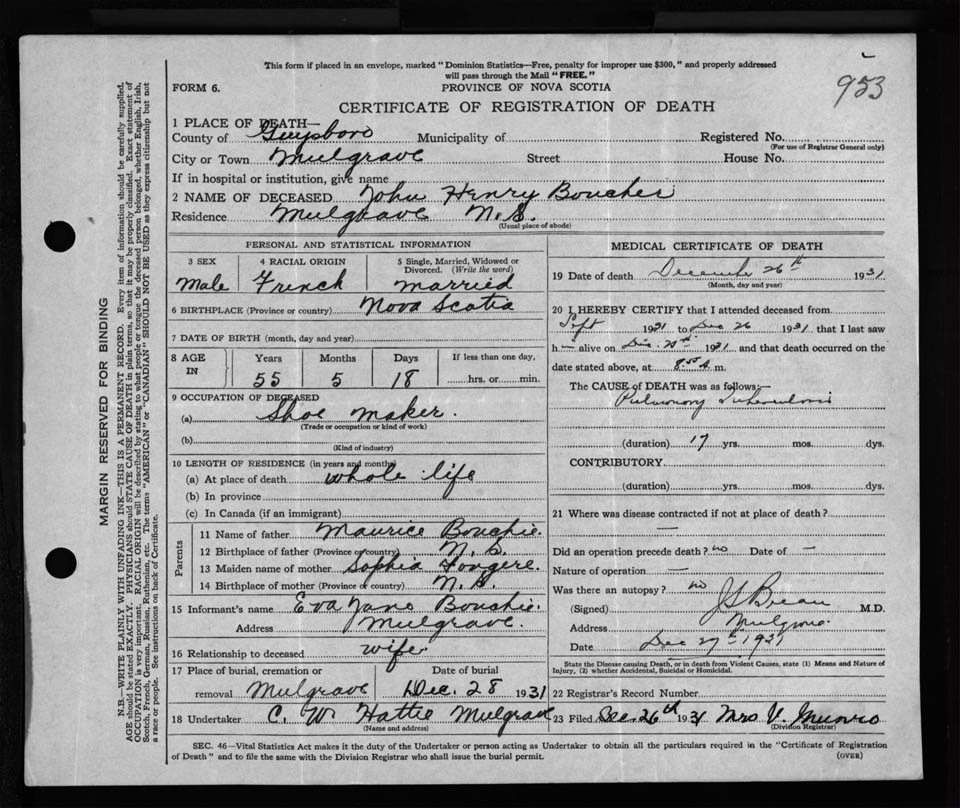 This form if placed in an envelope, marked "Dominion Statistics—Free, penalty for improper use $300," and properly addressed
will pass through the Mail "FREE."
953
FORM 6.
PROVINCE OF NOVA SCOTIA
CERTIFICATE OF REGISTRATION OF DEATH
1 PLACE OF DEATH—
County of Guysboro Municipality of Registered No.
(For use of Registrar General only)
City or Town Mulgrave Street House No.
If in hospital or institution, give name
2 NAME OF DECEASED John Henry Boucher
Residence Mulgrave N.S.
(Usual place of abode)
PERSONAL AND STATISTICAL INFORMATION
3 SEX 4 RACIAL ORIGIN 5 Single, Married, Widowed or
Divorced. (Write the word)
Male French married
6 BIRTHPLACE (Province or country) Nova Scotia
7 DATE OF BIRTH (month, day and year)
8 AGE IN Years Months Days If less than one day,
55 5 18 hrs. or min.
9 OCCUPATION OF DECEASED
(a) Shoe maker.
(Trade or occupation or kind of work)
(b)
(Kind of industry)
10 LENGTH OF RESIDENCE (in years and months)
(a) At place of death whole life
(b) In province
(c) In Canada (if an immigrant)
Parents
11 Name of father Maurice Bouchie.
12 Birthplace of father (Province or country) N.S.
13 Maiden name of mother Sophia Fougere.
14 Birthplace of mother (Province or country) N.S.
15 Informant's name Eva Jane Bouchie.
Address Mulgrave.
16 Relationship to deceased wife.
17 Place of burial, cremation or Date of burial
removal Mulgrave Dec. 28 1931
18 Undertaker C. W. Hattie Mulgrave
(Name and address)
MEDICAL CERTIFICATE OF DEATH
19 Date of death December 26th 1931.
(Month, day and year)
20 I HEREBY CERTIFY that I attended deceased from
Sept 1931 to Dec 26 1931, that I last saw
h alive on Dec. 1931 and that death occurred on the
date stated above, at m.
The CAUSE of DEATH was as follows:—
Pulmonary Tuberculosis
(duration) 17 yrs. mos. dys.
CONTRIBUTORY
(duration) yrs. mos. dys.
21 Where was disease contracted if not at place of death?
Did an operation precede death? no Date of —
Nature of operation —
Was there an autopsy? no
(Signed) M.D.
Address Mulgrave.
Date Dec 27th 1931
State the Disease causing Death, or in death from Violent Causes, state (1) Means and Nature of
Injury, (2) whether Accidental, Suicidal or Homicidal.
22 Registrar's Record Number
23 Filed Dec. 26th 1931 Mrs V. Munro
(Division Registrar)
SEC. 46—Vital Statistics Act makes it the duty of the Undertaker or person acting as Undertaker to obtain all the particulars required in the "Certificate of Registration
of Death" and to file the same with the Division Registrar who shall issue the burial permit.
(OVER)
MARGIN RESERVED FOR BINDING
N.B.—WRITE PLAINLY WITH UNFADING INK—THIS IS A PERMANENT RECORD. Every item of information should be carefully supplied.
AGE should be stated EXACTLY. PHYSICIANS should STATE CAUSE OF DEATH in plain terms, so that it may be properly classified. Exact statement of
OCCUPATION is very important. RACIAL ORIGIN will be described by stating to what people or tongue the deceased person belonged, whether English, Irish,
Scotch, French, German, Russian, Ruthenian, etc. The terms "AMERICAN" or "CANADIAN" SHOULD NOT BE USED as they express citizenship but not
a race or people. See instructions on back of Certificate.